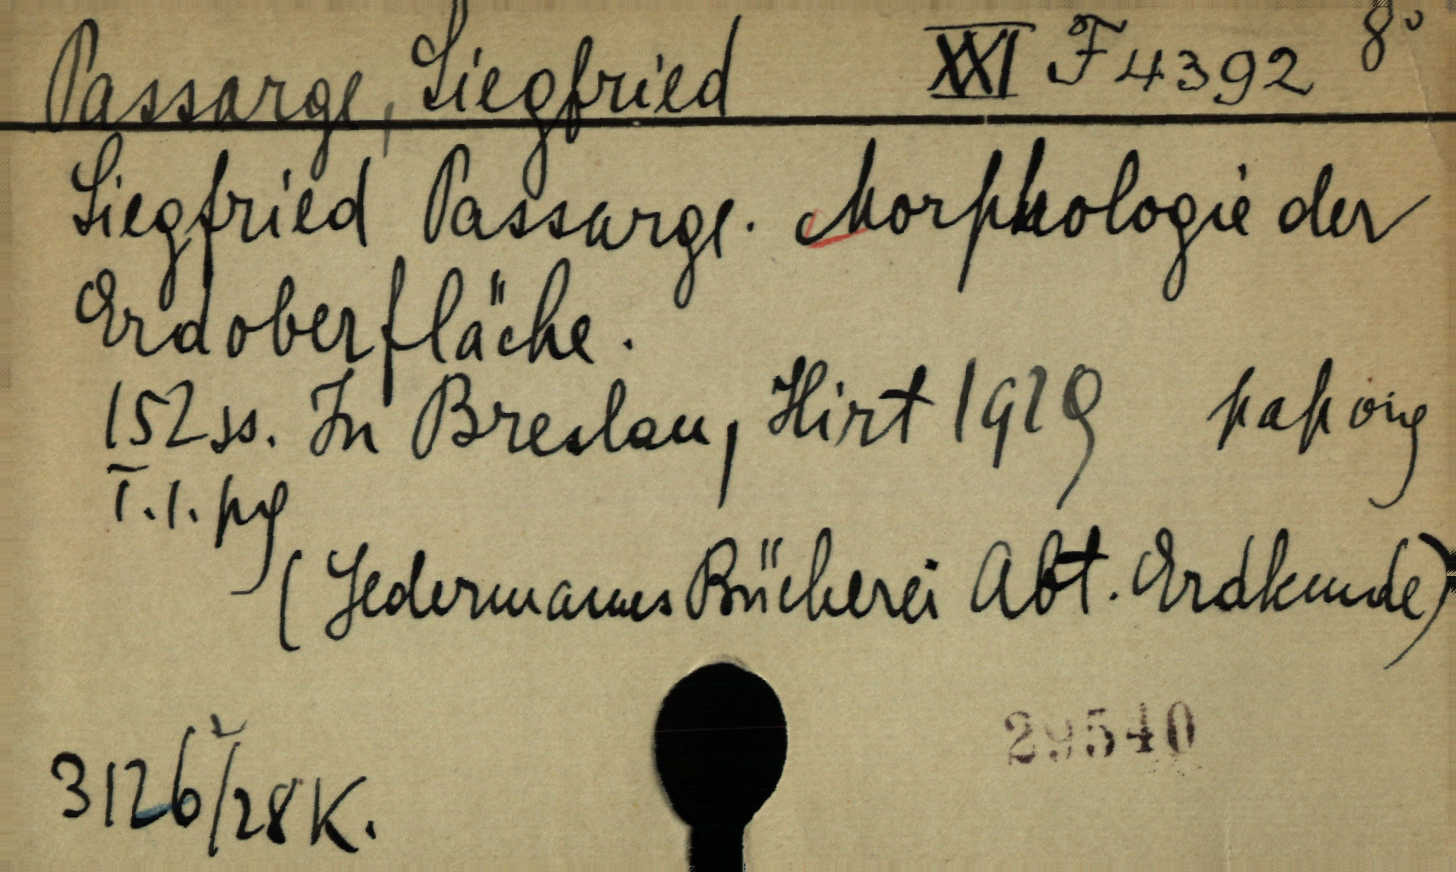 Passarge, Siegfried XXI F 4392 8°
Siegfried Passarge. Morphologie der
Erdoberfläche.
152 ss. In Breslau, Hirt 1919
I.1.
(Jedermanns Bücherei Abt. Erdkunde)
29540
3126/28 K.